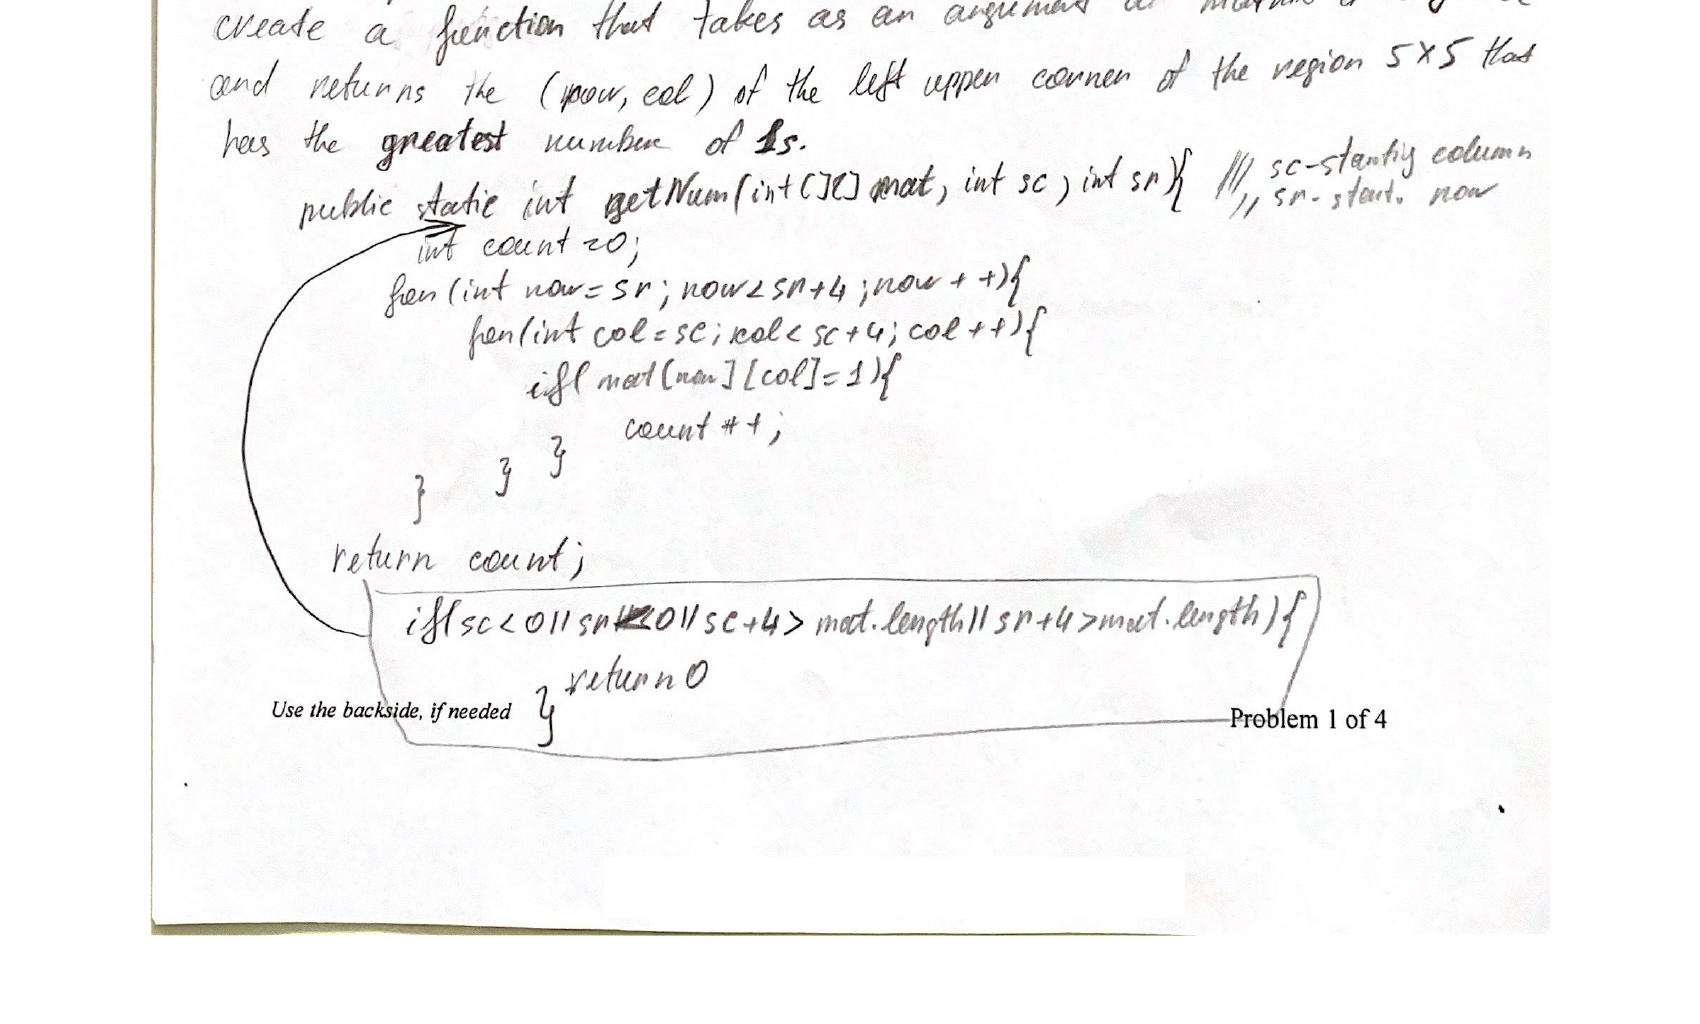 create a function that takes as an argument a
and returns the (row, col) of the left upper corner of the region 5x5 that
has the greatest number of 1s.
public static int getNum(int[][] mat, int sc, int sr){ /// sc-starting column
,, sr- start. row
int count =0;
for(int row= sr; row<sr+4; row++){
for(int col=sc; col< sc+4; col++){
if( mat[row][col]=1){
count ++;
}
}
}
return count;
if(sc<0|| sr<0|| sc+4> mat.length|| sr+4>mat.length){
return 0
}
Use the backside, if needed
Problem 1 of 4